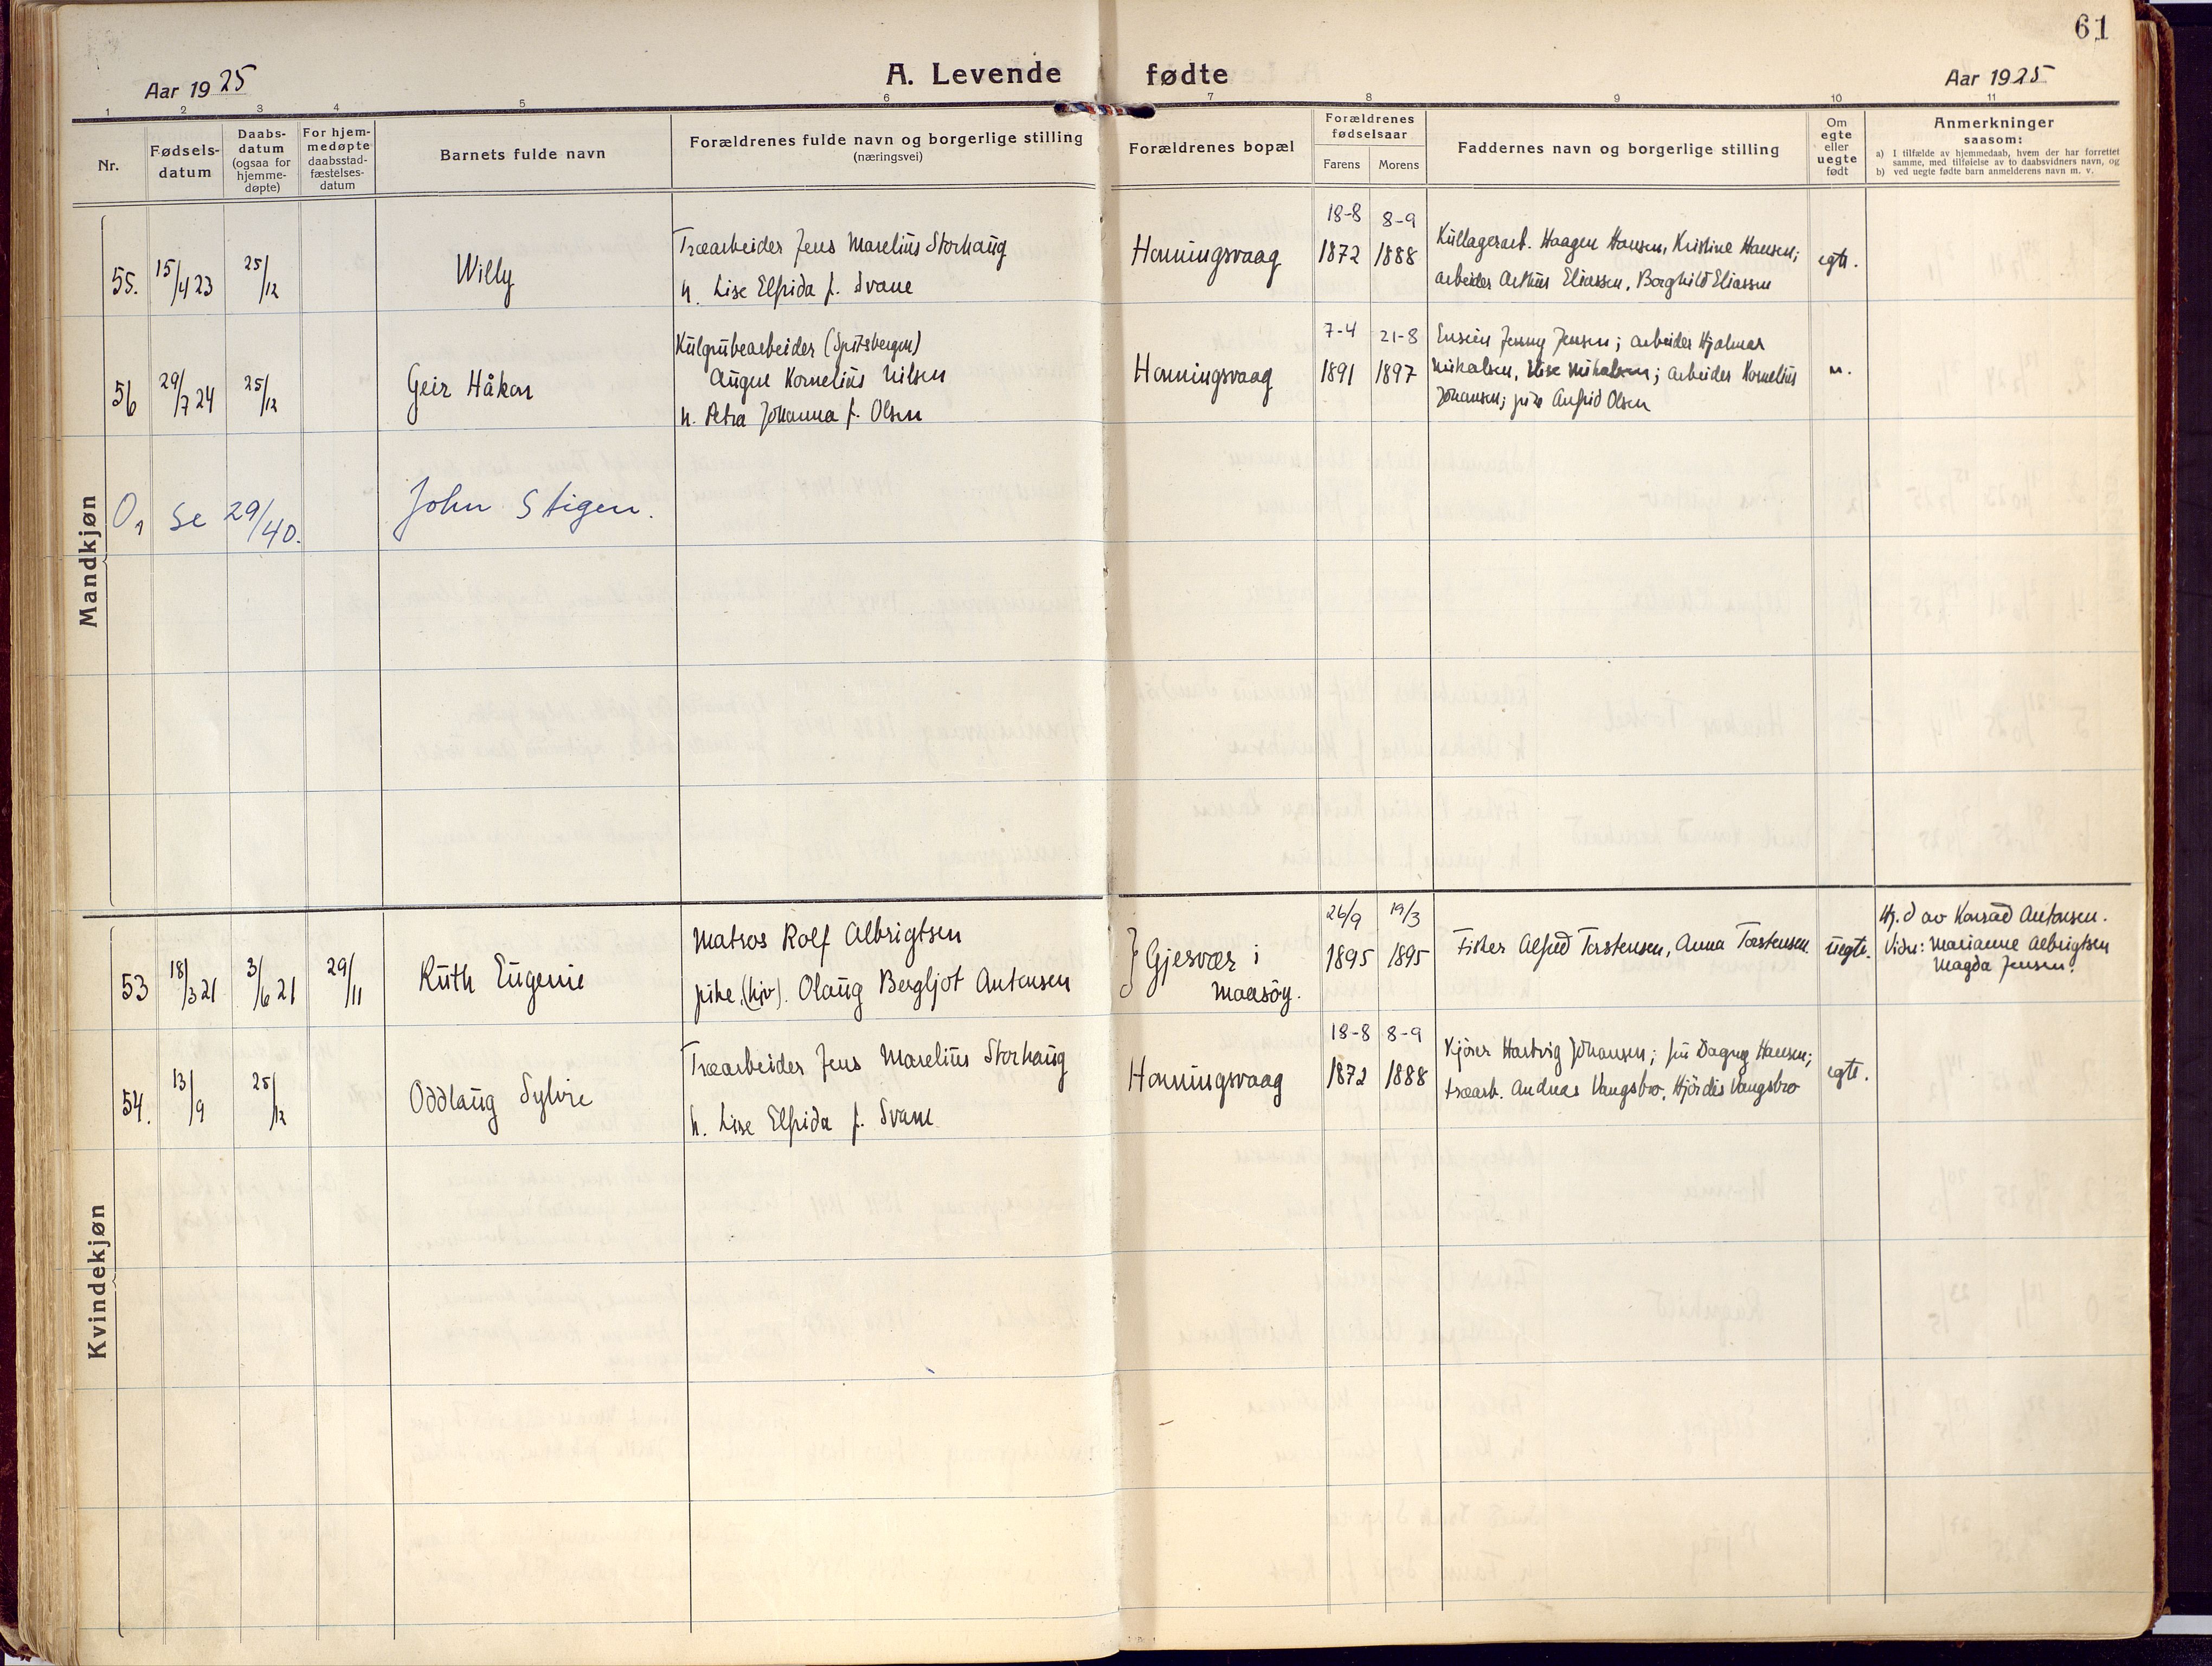 61
Aar 1925
A. Levende fødte
Aar 1925
1 2 3 4 5 6 7 8 9 10 11
Nr.
Fødsels-
datum
Daabs-
datum
(ogsaa for
hjemme-
døpte)
For hjem-
medøpte
daabsstad-
fæstelses-
datum
Barnets fulde navn
Forældrenes fulde navn og borgerlige stilling
(næringsvei)
Forældrenes bopæl
Forældrenes
fødselsaar
Farens
Morens
Faddernes navn og borgerlige stilling
Om
egte
eller
uegte
født
Anmerkninger
saasom:
a) I tilfælde av hjemmedaab, hvem der har forrettet
samme, med tilføielse av to daabsvidners navn, og
b) ved uegte fødte barn anmelderens navn m. v.
Mandkjøn
55. 15/4 23 25/12 Willy
Træarbeider Jens Marelius Storhaug
h. Lise Elfrida f. Svane
Honningsvaag
18-8 1872
8-9 1888
Kullagerarb. Haagen Hansen, Kristine Hansen;
arbeider Arthur Eliassen, Borghild Eliassen
egte.
56 29/7 24 25/12 Geir Håkon
Kulgrubearbeider (Spitsbergen)
August Kornelius Nilsen
h. Petra Johanna f. Olsen
Honningsvaag
7-4 1891
21-8 1897
Jenny Jensen; arbeider Hjalmar
Mikalsen, Lise Mikalsen; arbeider Kornelius
Johansen; pike Anfrid Olsen
Se 29/40. John Stigen.
Kvindekjøn
53 18/3 21 3/6 21 29/11 Ruth Eugenie
Matros Rolf Albrigtsen
pike, (hjv). Olaug Bergljot Antonsen
Gjesvær i
Maasöy.
26/9 1895
19/3 1895
Fisker Alfred Torstensen, Anna Torstensen.
uegte.
Hj. d av Konrad Antonsen.
Vidn: Marianne Albrigtsen
Magda Jensen.
54. 13/9 25/12 Oddlaug Sylvie
Træarbeider Jens Marelius Storhaug
h. Lise Elfrida f. Svane
Honningsvaag
18-8 1872
8-9 1888
Kjörer Hartvig Johansen; fru Dagny Hansen;
træarb. Andreas Vangsbro, Hjördis Vangsbro
egte.